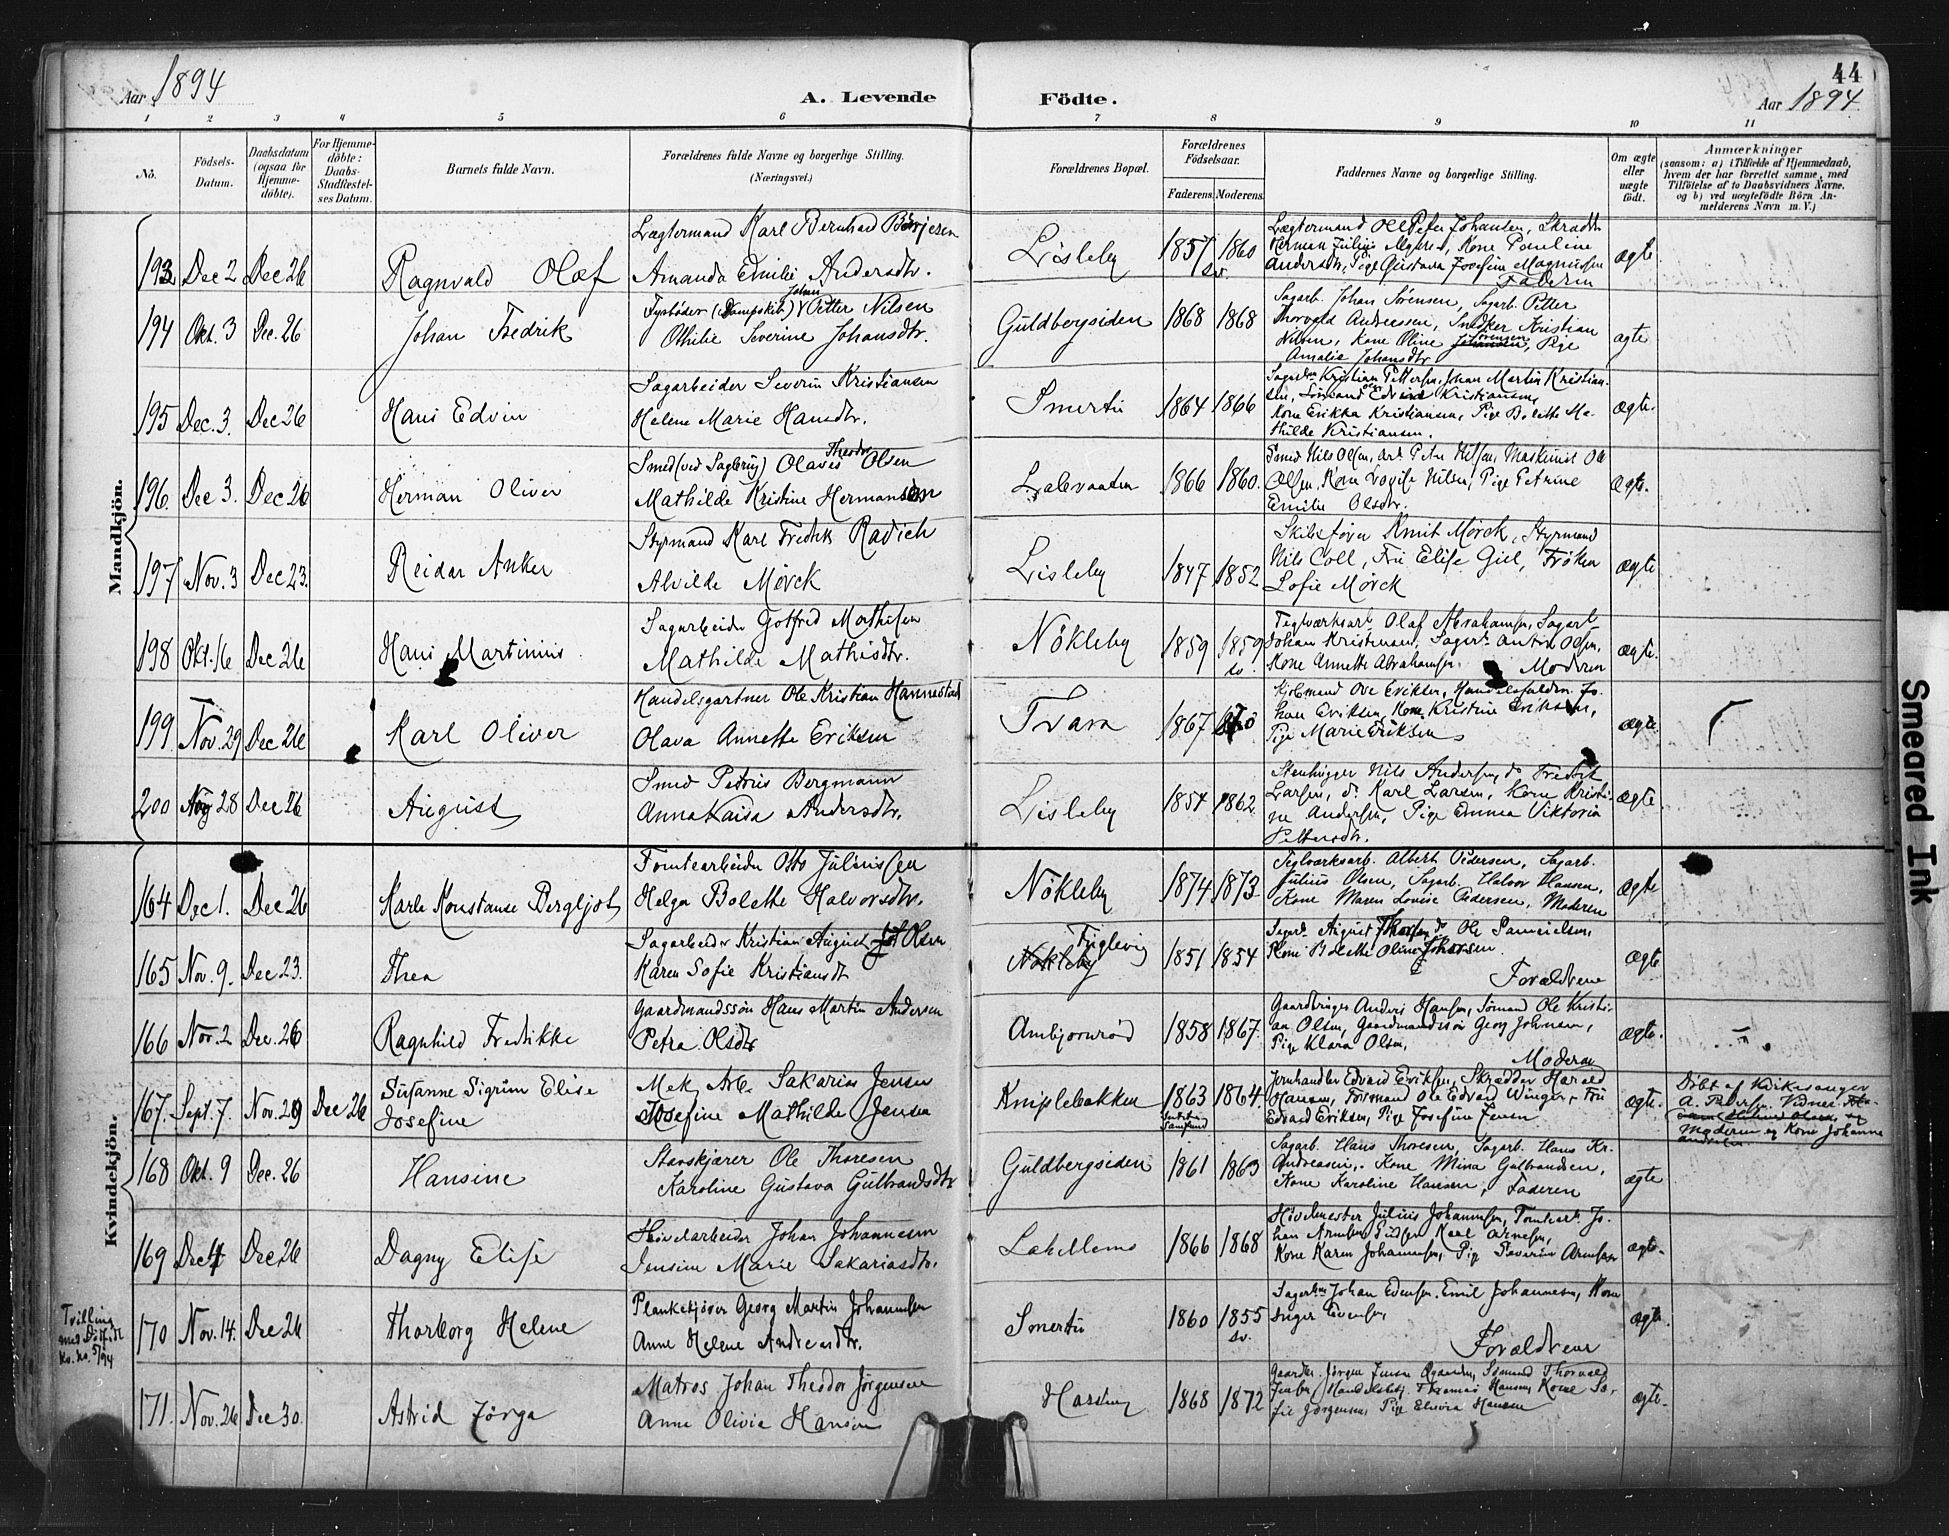 Aar 1894
A. Levende Födte.
44
Aar 1894
1 2 3 4 5 6 7 8 9 10 11
No.
Födsels-Datum.
Daabsdatum (ogsaa for Hjemme-döbte).
For Hjemme-döbte: Daabs-Stadfæstel-ses Datum.
Barnets fulde Navn.
Forældrenes fulde Navne og borgerlige Stilling.
(Næringsvei.)
Forældrenes Bopæl.
Forældrenes Födselsaar.
Faderens Moderens
Faddernes Navne og borgerlige Stilling.
Om ægte eller uægte födt.
Anmærkninger
(saasom: a) i Tilfælde af Hjemmedaab,
hvem der har forrettet samme, med
Tilföielse af to Daabsvidners Navne,
og b) ved uægtefödte Börn An-
melderens Navn m. V.)
Mandkjön.
193 Dec 2 Dec 26 Ragnvald Olaf
Lægtermand Karl Bernhard Börjesen
Amanda Emilie Andersdtr.
Lisleby 1857 1860
Lægtermand Ole Peter Johansen,
Kone Pauline
Andersdtr, Pige Gustava Josefine Magnussen
Faderen
ægte
194 Okt. 3 Dec. 26 Johan Fredrik
Fyrböder (Dampskib) Johan Petter Nilsen
Othilie Severine Johansdtr.
Guldbergsiden 1868 1868
Sagarb. Johan Sørensen, Sagarb. Petter
Thorvald Andreessen, Snedker Kristian
Nilsen, Kone Oline Sørensen, Pige
Amalie Johansdtr
ægte
195 Dec. 3. Dec 26 Hans Edvin
Sagarbeider Severin Kristiansen
Helene Marie Hansdtr.
Smertu 1864 1866
Kristian Pettersen, Johan Martin Kristian-
sen, Sömand Kristiansen,
Kone Erikka Kristiansen, Pige Bolette Ma-
thilde Kristiansen.
ægte.
196. Dec 3. Dec 26 Herman Oliver
Smed (ved Sagbrug) Olaves Theodor Olsen
Mathilde Kristine Hermansen
1866 1860.
Smed Nils Olsen, Petter Nilsen, Maskinist Ole
Olsen, Kone Lovise Nilsen, Pige Petrine
Emilie Olsdtr.
ægte.
197 Nov. 3 Dec 23. Reidar Anker
Styrmand Karl Fredrik Radich
Alvilde Mörck
Lisleby 1847 1852
Skibsförer Knut Mörck, Styrmand
Nils Coll, Fru Elise Giel, Fröken
Sofie Mörck
ægte
198 Okt. 16 Dec 26 Hans Martinius
Sagarbeider Gotfred Mathisen
Mathilde Mathisdtr.
Nökleby 1859 1859
Teglværksarb Olaf Abrahamsen, Sagarb
Johan Kristensen, Olsen,
Kone Annette Abrahamsen. Moderen
ægte.
199. Nov. 29 Dec 26 Karl Oliver
Handelsgartner Ole Kristian Hannestad
Olava Annette Eriksen
Tvara 1867
Kjöbmand Ove Eriksen, Jo-
han Eriksen, Kone Kristine Eriksen,
Pige Marie Eriksen
ægte
200 Nov 28 Dec 26 August
Smed Petrus Bergmann
Anna Kaisa Andersdtr.
Lisleby 1854 1862
Stenhugger Nils Andersen, do Fredrik
Larsen, do Karl Larsen, Kone Kristi-
ne Andersen, Pige Emma Viktoria
Pettersdtr.
ægte
Kvindekjön.
164 Dec 1. Dec 26 Karla Konstanse Bergljot
Tomtearbeider Otto Juliussen
Helga Bolette Halvorsdtr.
Nökleby 1874 1873
Teglværksarb. Albert Pedersen, Sagarb.
Julius Olsen, Sagarb. Halvor Hansen,
Kone Maren Lovise Pedersen, Moderen
ægte
165 Nov. 9. Dec 23. Thea
Sagarbeider Kristian August Olsen
Karen Sofie Kristiansdt
Nökleby Fuglevig 1851 1854
August Thorsen, do Ole Danielsen,
Kone Bolette Oline Johansen
Forældrene
ægte
166 Nov. 2 Dec. 26 Ragnhild Fredrikke
Gaardmandssön Hans Martin Andersen
Petra Olsdtr
Ambjørnröd 1858 1867.
Gaardbruger Anders Hansen, Sömand Ole Kristi-
an Olsen, Gaardmandssön Georg Johnsen,
Pige Klara Olsen,
Moderen
ægte.
167. Sept. 7 Nov. 29 Dec 26 Susanne Sigrun Elise
Josefine
Mek. Arb. Sakarias Jensen
Josefine Mathilde Jensen
Kniplebakken 1863 1864.
Jernhandler Edvard Eriksen, Skrædder Harald
Hansen, Formand Ole Edvard Winger, Fru
Edvard Eriksen, Pige Josefine Jensen
ægte.
Döbt af Kirkesanger
A. Pedersen. Vidner
Moderen og Kone Johanne
168 Okt. 9 Dec. 26 Hansine
Stavskjærer Ole Thoresen
Karoline Gustava Gulbrandsdtr
Guldbergsiden 1861 1863
Sagarb. Hans Thoresen, Sagarb. Hans Kr.
Andreasen, Kone Mina Gulbrandsen,
Kone Karoline Hansen, Faderen
ægte
169 Dec 4 Dec 26 Dagny Elise
Hövlarbeider Johan Johannesen
Jensine Marie Sakariasdtr.
1866 1868
Hövlmester Julius Johannesen, Tomtearb. Jo-
Kone Karen Johannesen, Pige Severine Arnesen
ægte.
Tvilling
med
No. 5/94
170 Nov. 14. Dec 26 Thorborg Helene
Plankekjörer Georg Martin Johannesen
Anne Helene Andreasdtr.
Smertu 1860 1855
Johan Edvardsen, Emil Johannesen, Kone
Inger Evensen,
Forældrene
ægte.
171. Nov. 26 Dec 30. Astrid Jörga
Matros Johan Theodor Jörgensen
Anne Olivia Hansen
1868 1872
Jörgen Jensen, Sömand Thorvald
Jensen, Thomas Hansen, Kone So-
fie Jörgensen, Pige Elvira Hansen
ægte.
Smeared Ink